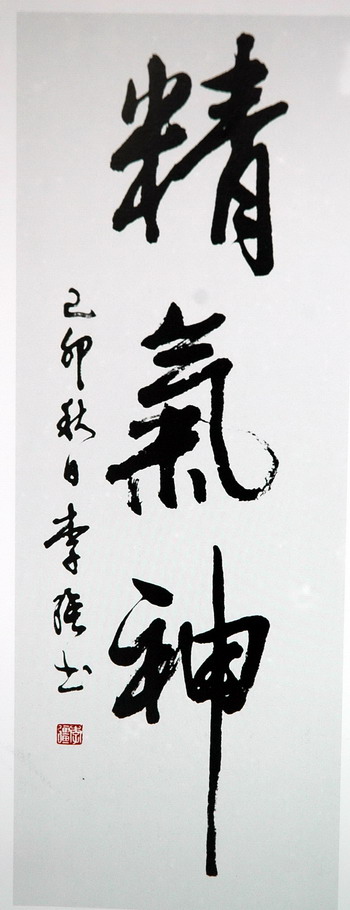 精氣神
己卯秋日李强书